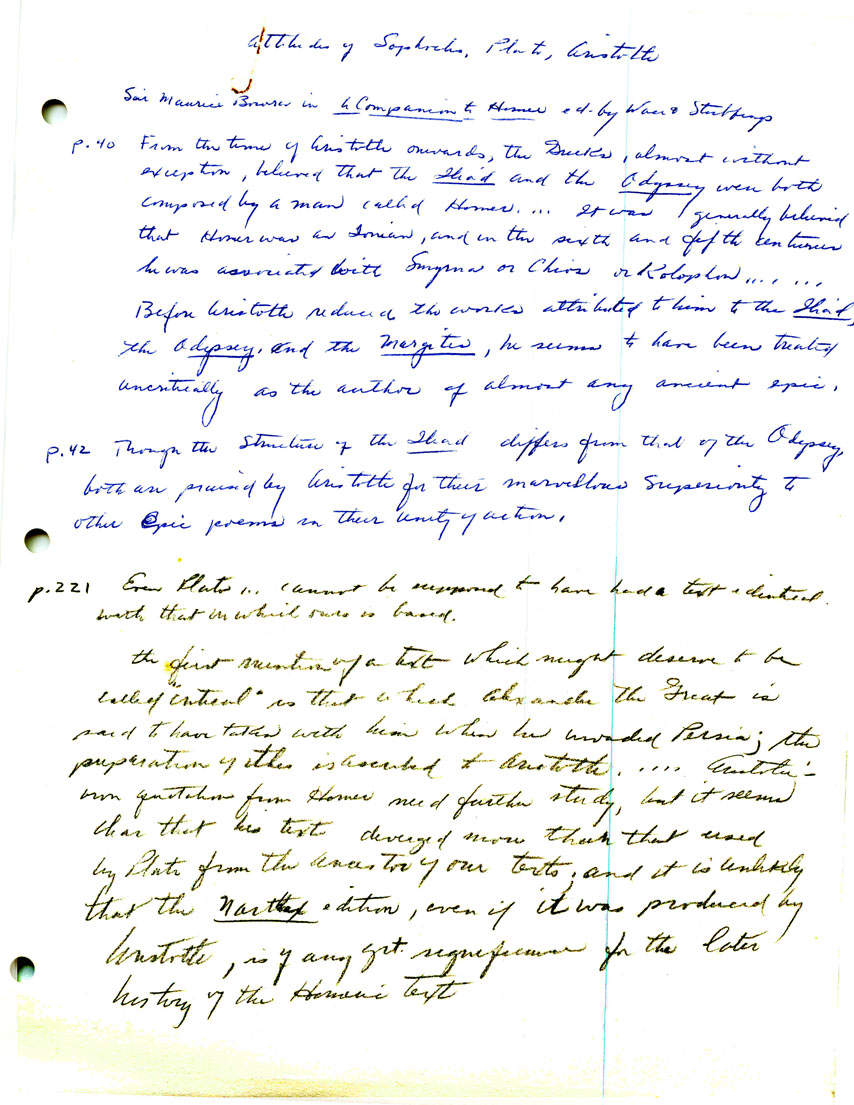 Attitudes of Sophocles, Plato, Aristotle
Sir Maurice Bowra in A Companion to Homer ed. by Wace & Stubbings
p.40 From the time of Aristotle onwards, the Greeks, almost without
exception, believed that the Iliad and the Odyssey were both
composed by a man called Homer.... It was generally believed
that Homer was an Ionian, and in the sixth and fifth centuries
he was associated with Smyrna or Chios or Kolophon......
Before Aristotle reduced the works attributed to him to the Iliad,
the Odyssey, and the Margites, he seems to have been treated
uncritically as the author of almost any ancient epic.
p.42 Though the structure of the Iliad differs from that of the Odyssey,
both are praised by Aristotle for their marvellous superiority to
other Epic poems in their unity of action.
p.221 Even Plato ... cannot be supposed to have had a text identical
with that on which ours is based.
the first mention of a text which might deserve to be
called "critical" is that which Alexander the Great is
said to have taken with him when he invaded Persia; the
preparation of this is ascribed to Aristotle. .... Aristotle's
own quotations from Homer need further study, but it seems
clear that his text diverged more than that used
by Plato from the ancestor of our texts; and it is unlikely
that the Narthex edition, even if it was produced by
Aristotle, is of any grt. significance for the later
history of the Homeric text